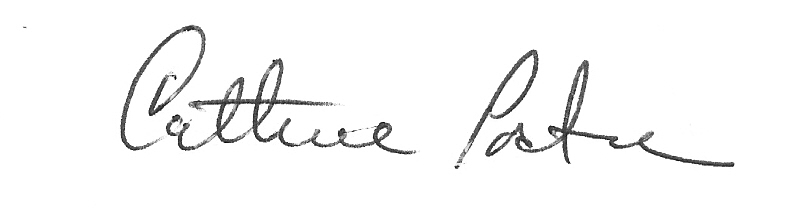 Catherine Porter